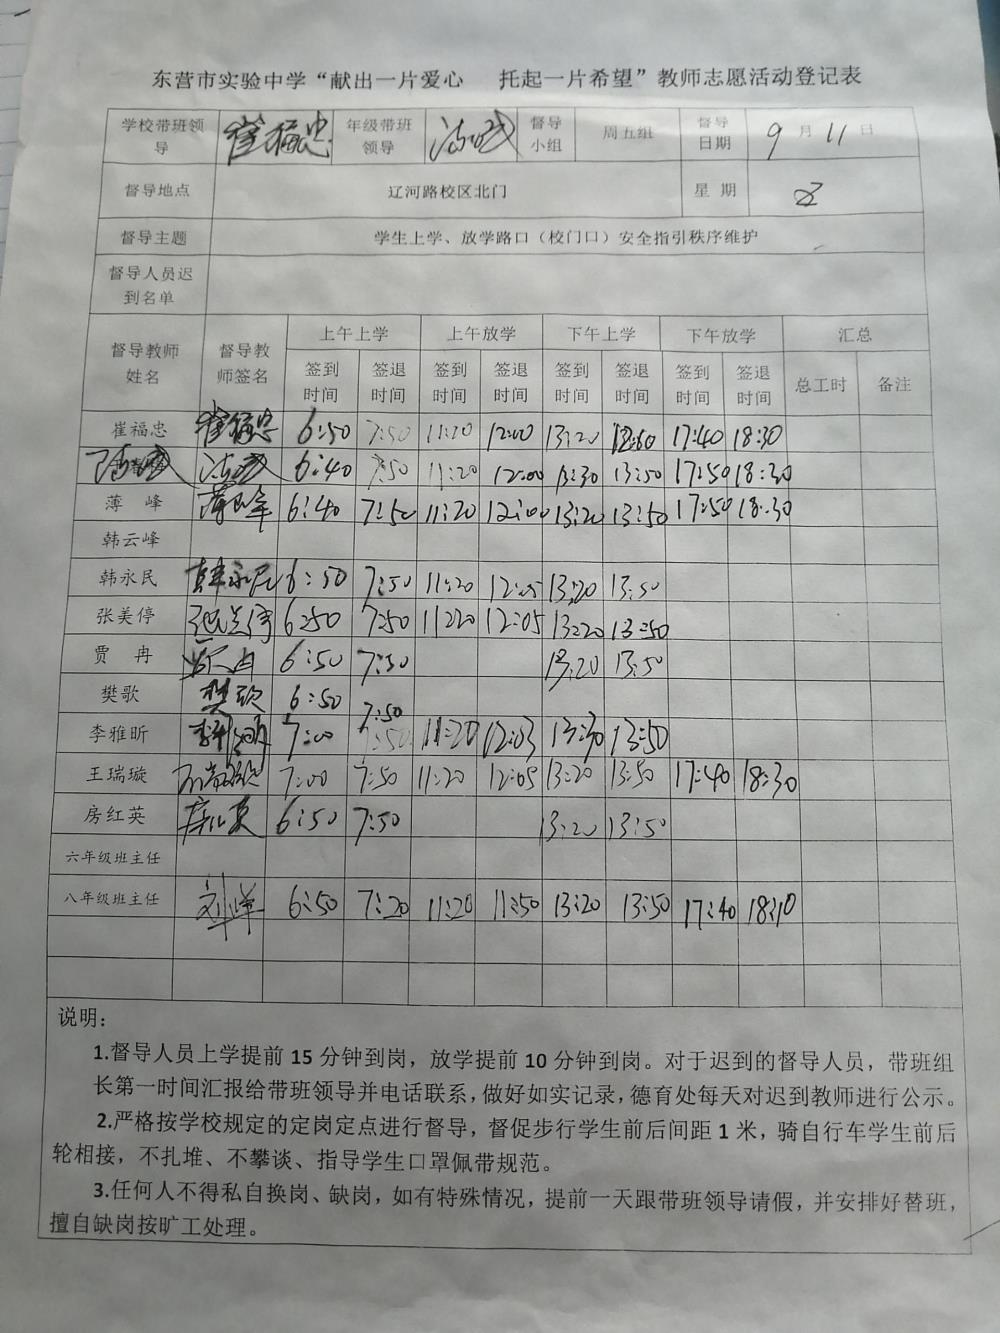 东营市实验中学“献出一片爱心 托起一片希望”教师志愿活动登记表
学校带班领导 崔福忠 年级带班领导 督导小组 周五组 督导日期 9月11日
督导地点 辽河路校区北门 星期 五
督导主题 学生上学、放学路口（校门口）安全指引秩序维护
督导人员迟到名单
督导教师姓名 督导教师签名 上午上学 上午放学 下午上学 下午放学 汇总
签到时间 签退时间 签到时间 签退时间 签到时间 签退时间 签到时间 签退时间 总工时 备注
崔福忠 崔福忠 6:50 7:50 11:20 12:00 13:20 17:40 18:30
6:40 7:50 11:20 12:00 13:30 13:50 17:50 18:30
薄峰 薄峰 6:40 7:50 11:20 12:00 13:20 13:50 17:50 18:30
韩云峰
韩永民 韩永民 6:50 7:50 11:20 12:05 13:20 13:50
张美停 张美停 6:50 7:50 11:20 12:05 13:20 13:50
贾冉 贾冉 6:50 7:50 13:20 13:50
樊歌 樊歌 6:50 7:50
李雅昕 李雅昕 7:00 7:50 11:20 12:03 13:30 13:50
王瑞璇 王瑞璇 7:00 7:50 11:20 12:05 13:20 13:50 17:40 18:30
房红英 房红英 6:50 7:50 13:20 13:50
六年级班主任
八年级班主任 6:50 7:20 11:20 11:50 13:20 13:50 17:40 18:10
说明：
1.督导人员上学提前 15 分钟到岗，放学提前 10 分钟到岗。对于迟到的督导人员，带班组
长第一时间汇报给带班领导并电话联系，做好如实记录，德育处每天对迟到教师进行公示。
2.严格按学校规定的定岗定点进行督导，督促步行学生前后间距 1 米，骑自行车学生前后
轮相接，不扎堆、不攀谈、指导学生口罩佩带规范。
3.任何人不得私自换岗、缺岗，如有特殊情况，提前一天跟带班领导请假，并安排好替班，
擅自缺岗按旷工处理。